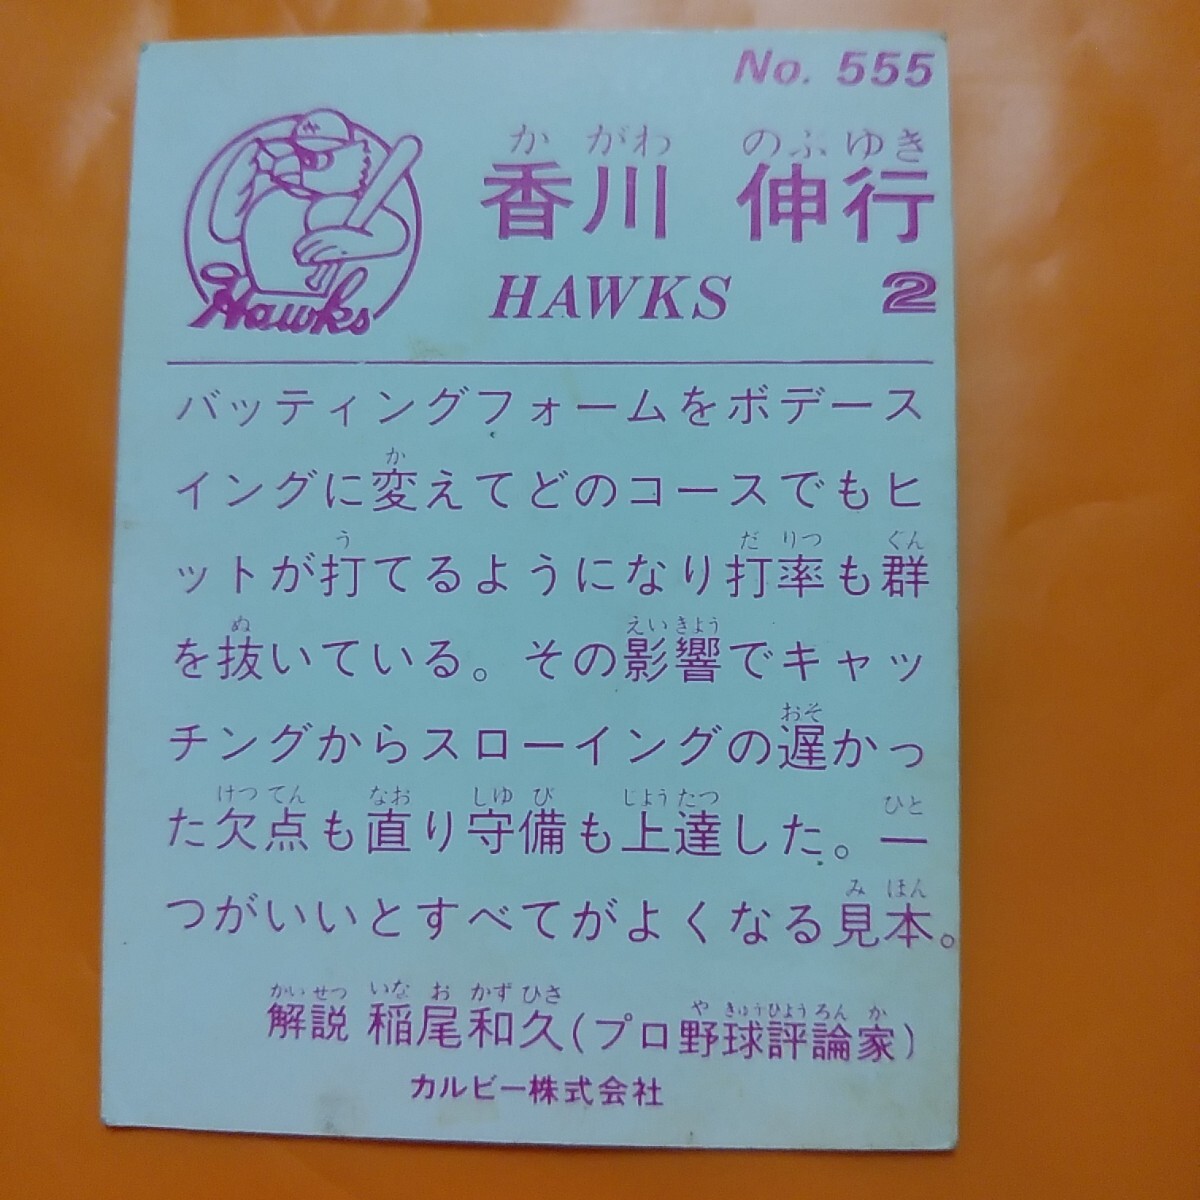 No. 555
か がわ のぶゆき
香川 伸行
Hawks
HAWKS 2
バッティングフォームをボデース
か
イングに変えてどのコースでもヒ
う だ りつ ぐん
ットが打てるようになり打率も群
ぬ えいきよう
を抜いている。その影響でキャッ
おそ
チングからスローイングの遅かっ
けつ てん なお しゆ び じようたつ ひと
た欠点も直り守備も上達した。一
み ほん
つがいいとすべてがよくなる見本。
かい せつ いな お かず ひさ や きゆうひようろん か
解説 稲尾和久(プロ野球評論家)
カルビー株式会社